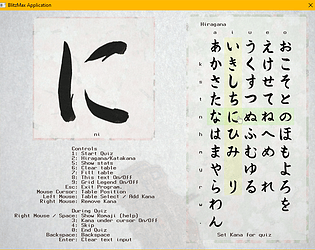 BlitzMax Application
に
ni
Hiragana
a i u e o
あ い う え お
k か き く け こ
s さ し す せ そ
t た ち つ て と
n な に ぬ ね の
h は ひ ふ へ ほ
m ま み む め も
y や ゆ よ
r ら り る れ ろ
w わ を
ん
Set Kana for quiz
Controls
1: Start Quiz
2: Hiragana/Katakana
5: Show stats
6: Clear table
7: Fill table
8: This text On/Off
9: Grid Legend On/Off
Esc: Exit Program.
Mouse Cursor: Table Position
Left Mouse: Table Select / Add Kana
Right Mouse: Remove Kana
During Quiz
Right Mouse / Space: Show Romaji (help)
3: Kana under cursor On/Off
4: Skip
0: End Quiz
Backspace: Backspace
Enter: Clear text input